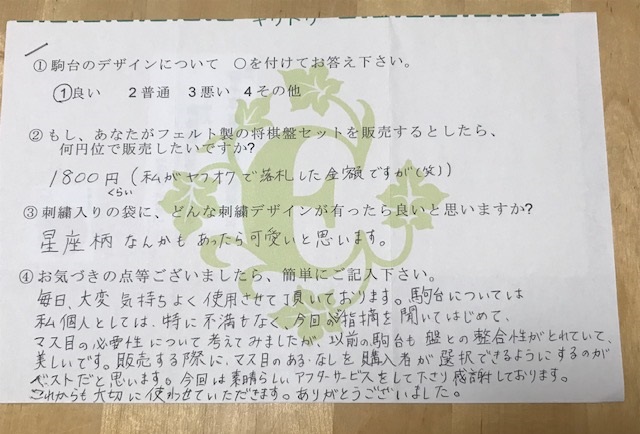 キリトリ
①駒台のデザインについて ○を付けてお答え下さい。
①良い 2普通 3悪い 4その他
②もし、あなたがフェルト製の将棋盤セットを販売するとしたら、
何円位で販売したいですか?
1800円(私がヤフオクで落札した金額ですが(笑))
くらい
③刺繍入りの袋に、どんな刺繍デザインが有ったら良いと思いますか?
星座柄なんかもあったら可愛いと思います。
④お気づきの点等ございましたら、簡単にご記入下さい。
毎日、大変気持ちよく使用させて頂いております。駒台については
私個人としては、特に不満もなく、今回のご指摘を聞いてはじめて、
マス目の必要性について考えてみましたが、以前の駒台も盤との整合性がとれていて、
美しいです。販売する際に、マス目のある・なしを購入者が選択できるようにするのが
ベストだと思います。今回は素晴らしいアフターサービスをして下さり感謝しております。
これからも大切に使わせていただきます。ありがとうございました。